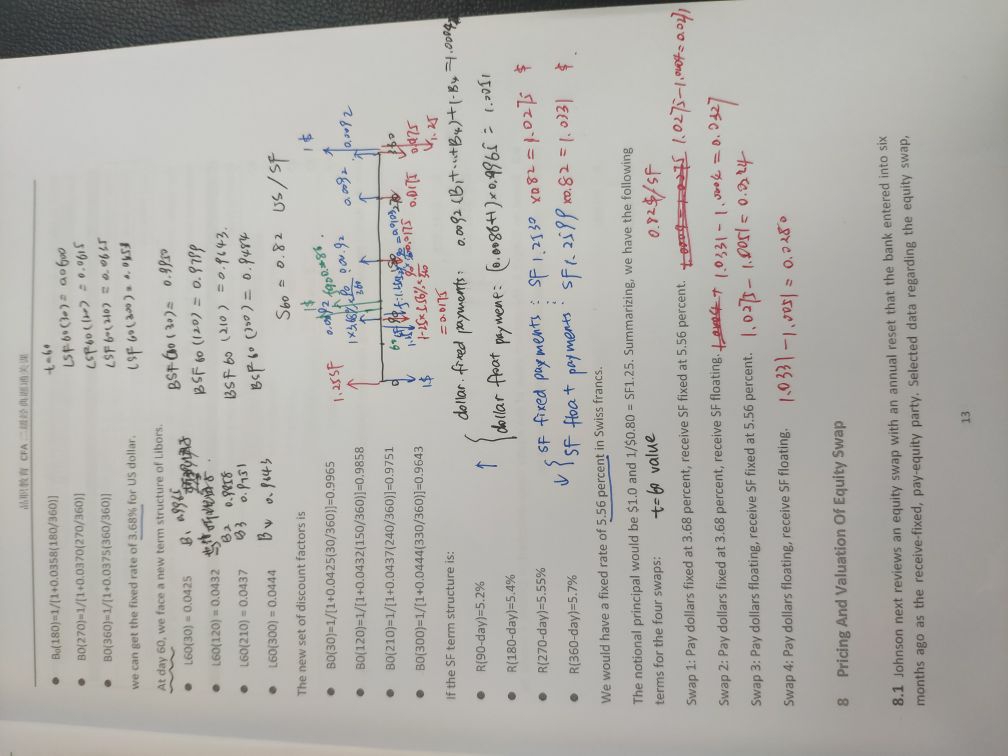 品职教育 CFA 二级经典题通关课
B₀(180)=1/[1+0.0358(180/360)]
B0(270)=1/[1+0.0370(270/360)]
B0(360)=1/[1+0.0375(360/360)]
t=60
LSF60(30)=0.0600
LSF60(120)=0.0615
LSF60(210)=0.0625
LSF60(300)=0.0653
we can get the fixed rate of 3.68% for US dollar.
At day 60, we face a new term structure of Libors.
L60(30) = 0.0425
L60(120) = 0.0432
L60(210) = 0.0437
L60(300) = 0.0444
B₁ 0.9965
B₂ 0.9858
B₃ 0.9751
B₄ 0.9643
BSF60(30)= 0.9950
BSF60(120)=0.9799
BSF60(210)=0.9643.
BSF60(300)=0.9484
S60=0.82 US/SF
The new set of discount factors is
B0(30)=1/[1+0.0425(30/360)]=0.9965
B0(120)=1/[1+0.0432(150/360)]=0.9858
B0(210)=1/[1+0.0437(240/360)]=0.9751
B0(300)=1/[1+0.0444(330/360)]=0.9643
1.25SF
1$
0.0092 0.0092 0.0092 0.0092
1$
0 60 90 270 360
1$
=0.0175
0.0175 0.0175
1.25
If the SF term structure is:
R(90-day)=5.2%
R(180-day)=5.4%
R(270-day)=5.55%
R(360-day)=5.7%
dollar fixed payments: 0.0092(B₁+...+B₄)+1·B₄=1.0004
dollar float payment: (0.0086+1)×0.9965=1.0051
SF fixed payments: SF 1.2530 ×0.82=1.0275 $
SF float payments: SF 1.2599 ×0.82=1.0331 $.
We would have a fixed rate of 5.56 percent in Swiss francs.
The notional principal would be $1.0 and 1/$0.80 = SF1.25. Summarizing, we have the following
terms for the four swaps:
t=60 value
0.82$/SF
Swap 1: Pay dollars fixed at 3.68 percent, receive SF fixed at 5.56 percent. 1.0275-1.0004=0.0271
Swap 2: Pay dollars fixed at 3.68 percent, receive SF floating. 1.0331-1.0004=0.0327
Swap 3: Pay dollars floating, receive SF fixed at 5.56 percent. 1.0275-1.0051=0.0224
Swap 4: Pay dollars floating, receive SF floating. 1.0331-1.0051=0.0280
8 Pricing And Valuation Of Equity Swap
8.1 Johnson next reviews an equity swap with an annual reset that the bank entered into six
months ago as the receive-fixed, pay-equity party. Selected data regarding the equity swap,
13